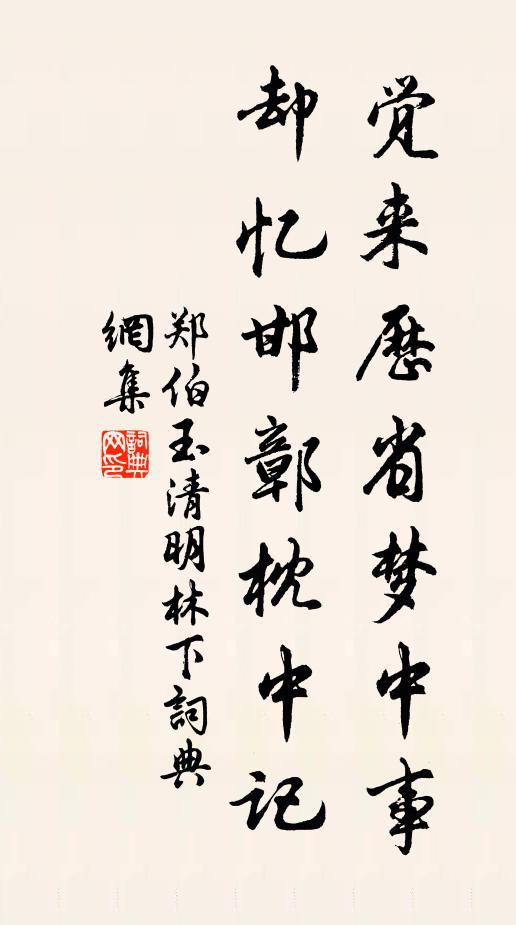 觉来历省梦中事
却忆邯鄣枕中记
郑伯玉清明林下詞典
網集
詞典
网印